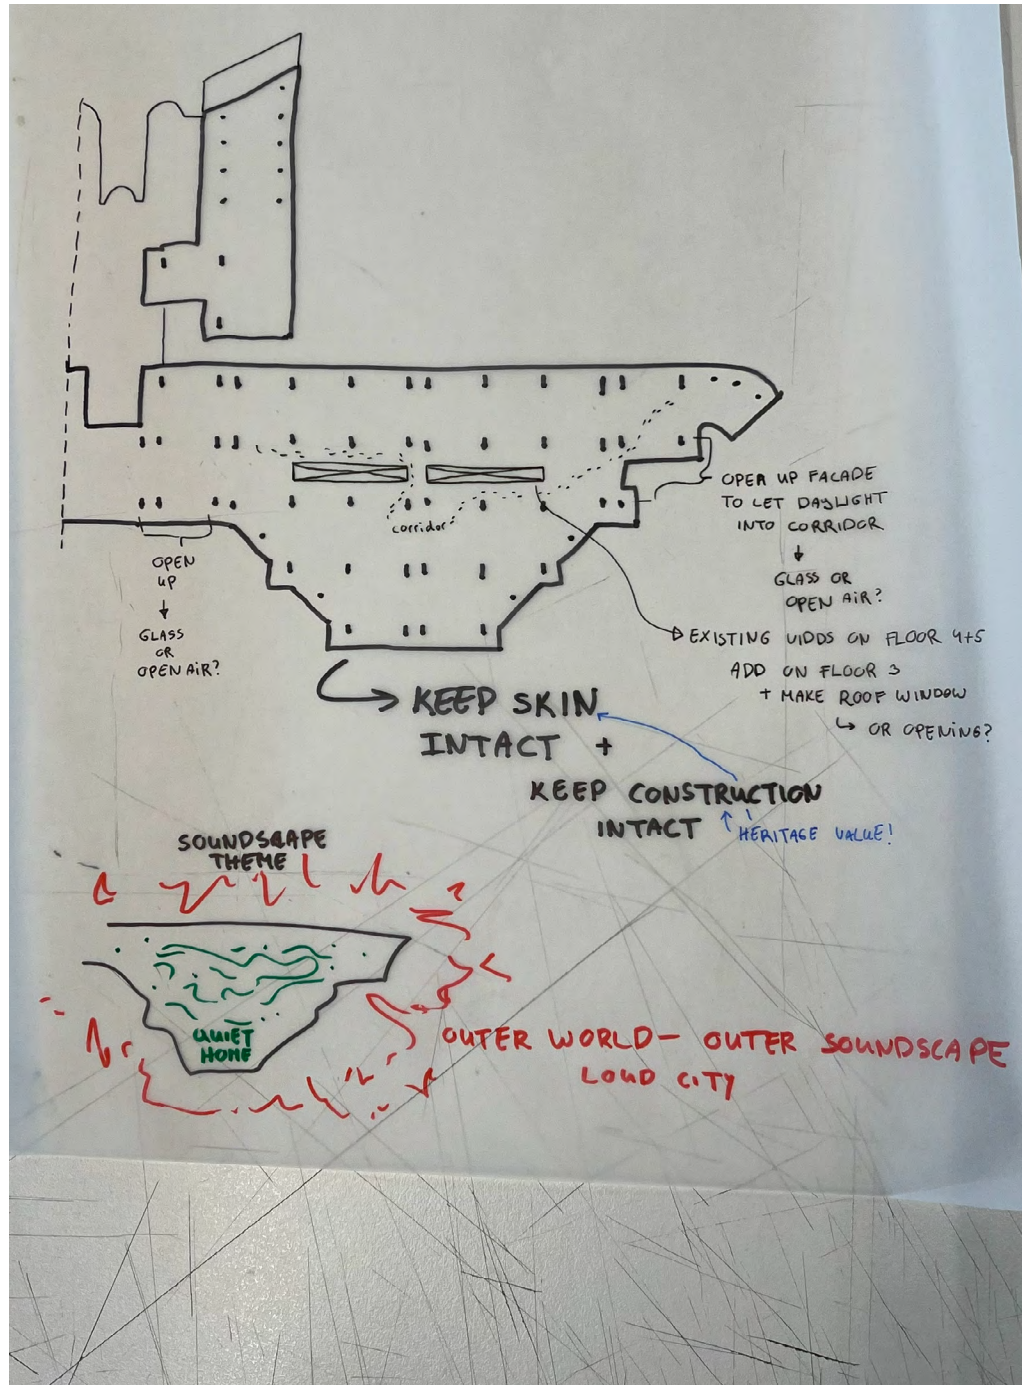 corridor
OPEN UP FACADE
TO LET DAYLIGHT
INTO CORRIDOR
↓
GLASS OR
OPEN AIR?
OPEN
UP
↓
GLASS
OR
OPEN AIR?
EXISTING VIDDS ON FLOOR 4+5
ADD ON FLOOR 3
+ MAKE ROOF WINDOW
↳ OR OPENING?
KEEP SKIN
INTACT +
KEEP CONSTRUCTION
INTACT
HERITAGE VALUE!
SOUNDSCAPE
THEME
QUIET
HOME
OUTER WORLD - OUTER SOUNDSCAPE
LOUD CITY